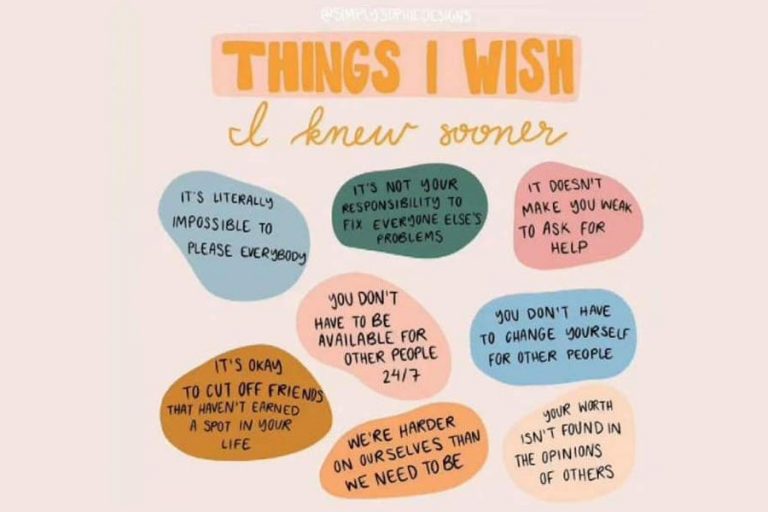 @SIMPLYSOPHIEDESIGNS
THINGS I WISH
I knew sooner
IT'S LITERALLY
IMPOSSIBLE TO
PLEASE EVERYBODY
IT'S NOT YOUR
RESPONSIBILITY TO
FIX EVERYONE ELSE'S
PROBLEMS
IT DOESN'T
MAKE YOU WEAK
TO ASK FOR
HELP
YOU DON'T
HAVE TO BE
AVAILABLE FOR
OTHER PEOPLE
24/7
YOU DON'T HAVE
TO CHANGE YOURSELF
FOR OTHER PEOPLE
IT'S OKAY
TO CUT OFF FRIENDS
THAT HAVEN'T EARNED
A SPOT IN YOUR
LIFE
WE'RE HARDER
ON OURSELVES THAN
WE NEED TO BE
YOUR WORTH
ISN'T FOUND IN
THE OPINIONS
OF OTHERS